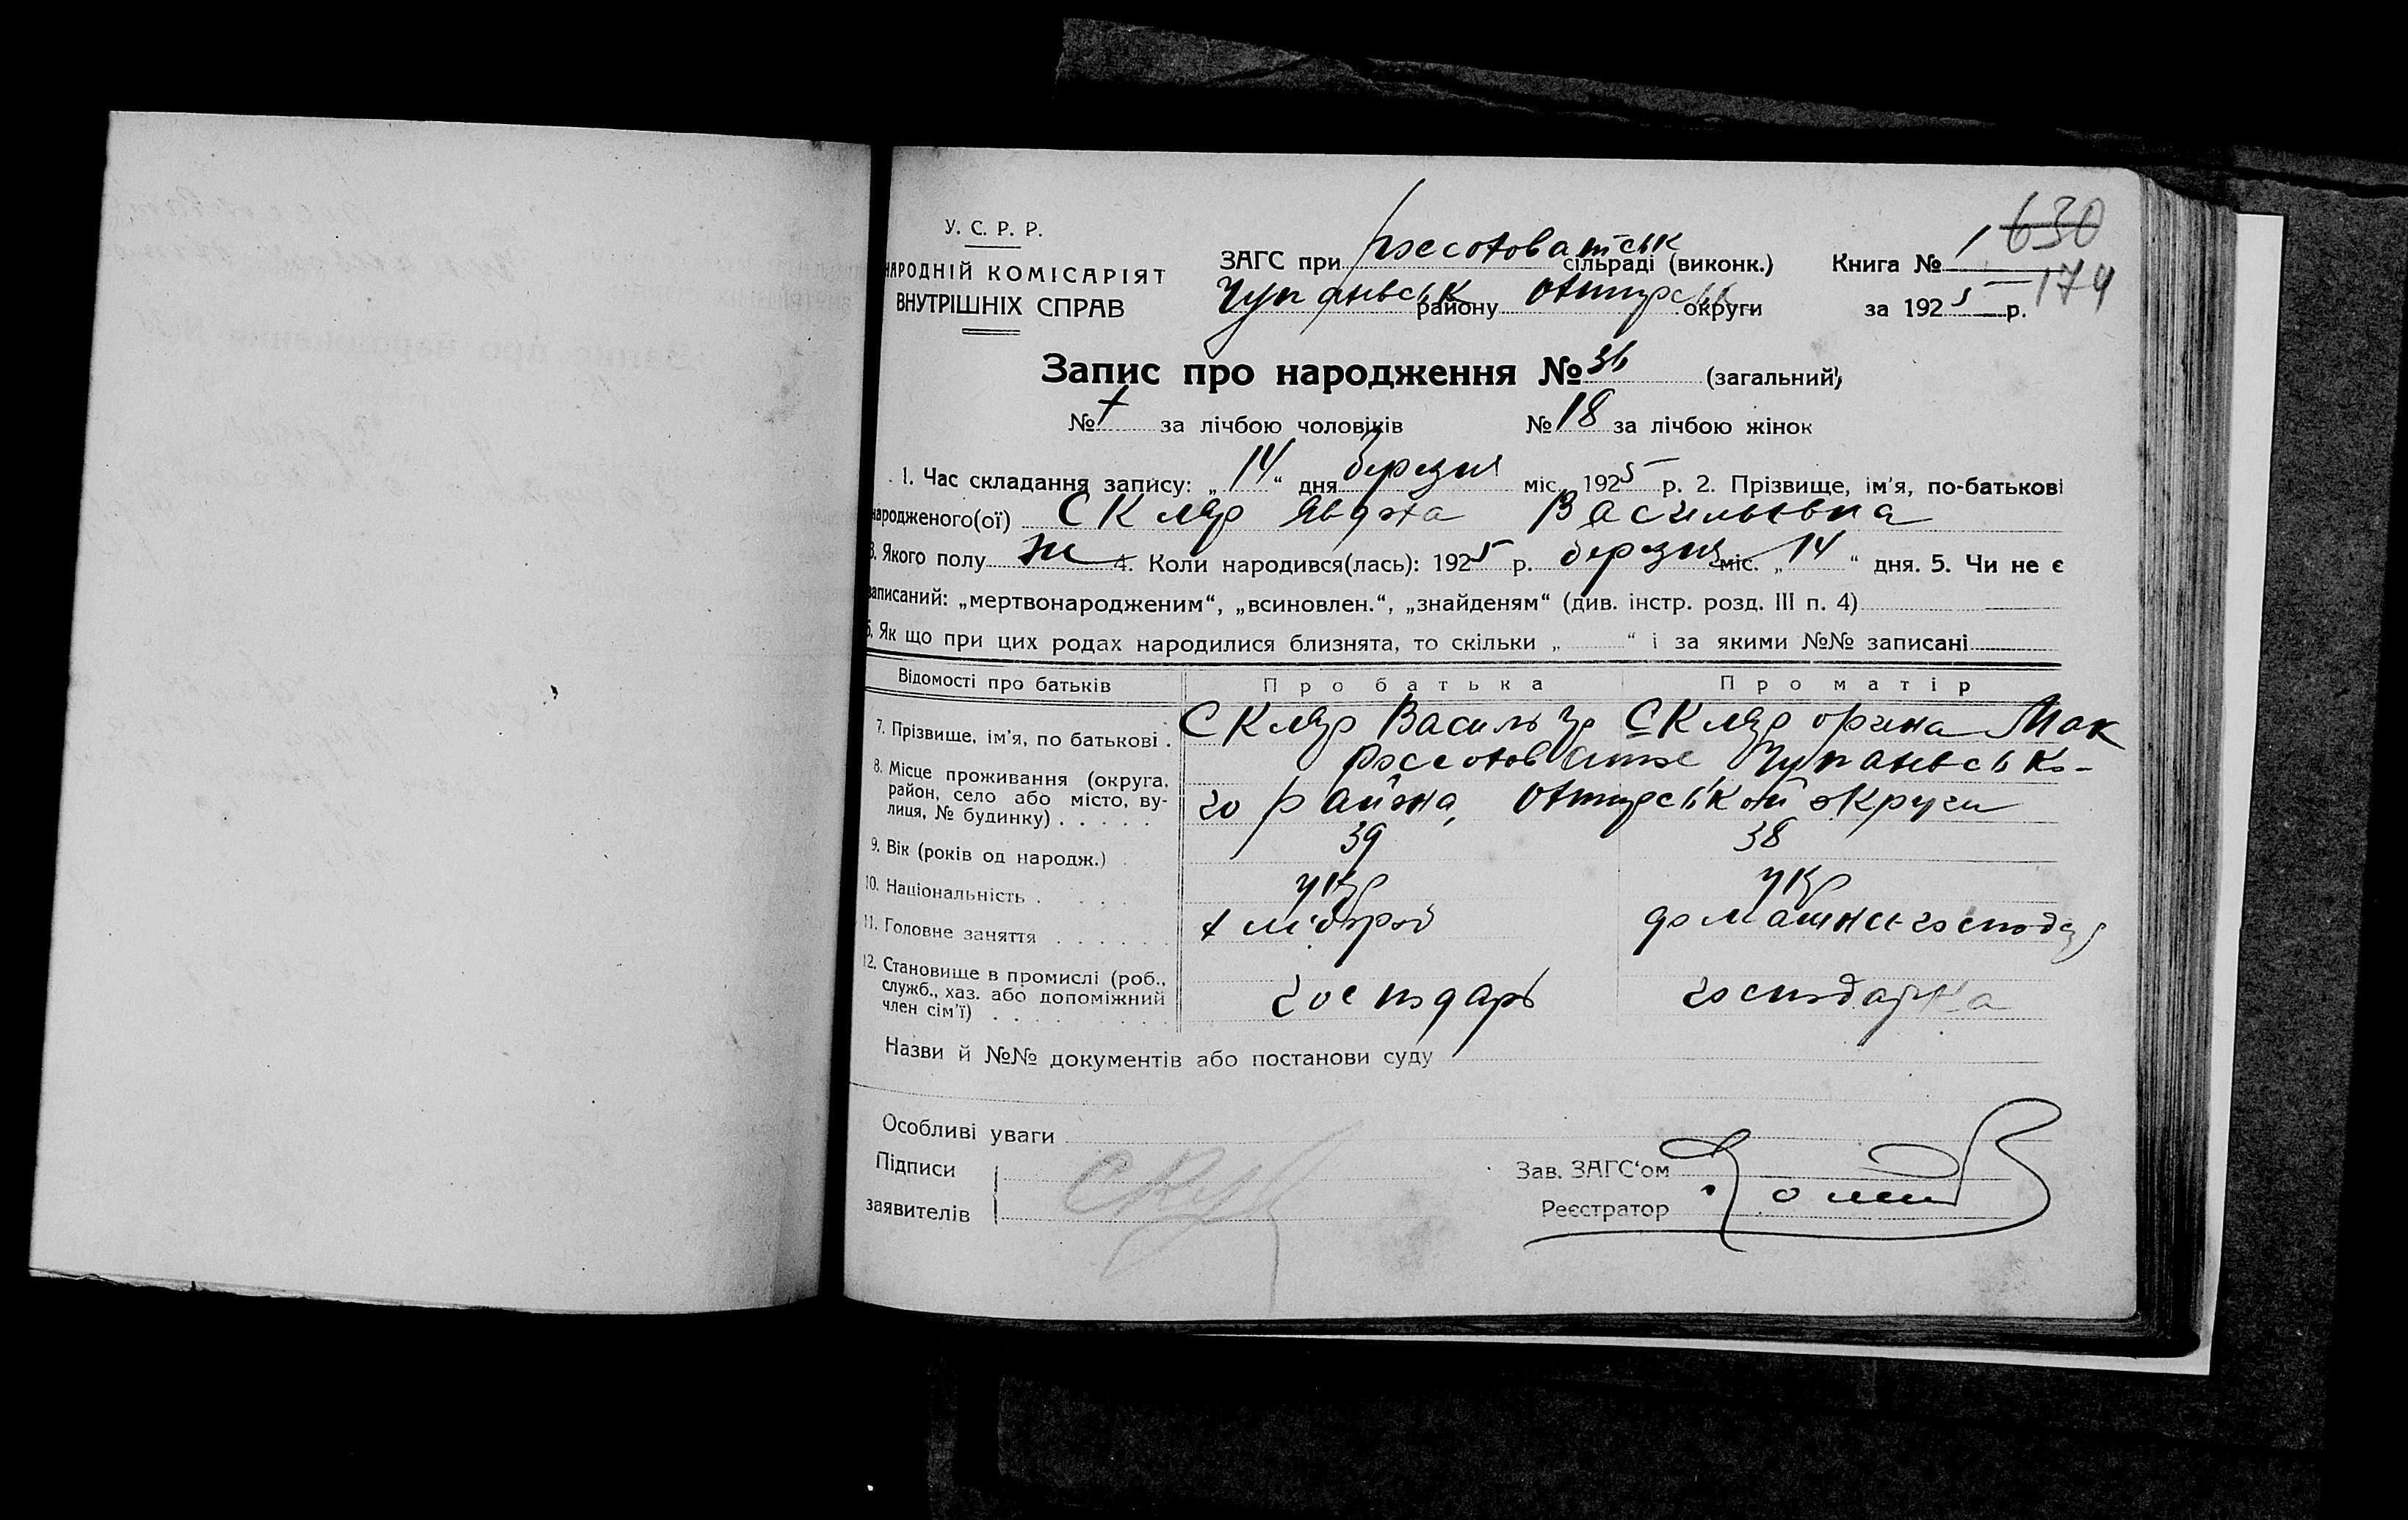 630
174
У. С. Р. Р.
НАРОДНІЙ КОМІСАРІЯТ
ВНУТРІШНІХ СПРАВ
ЗАГС при Россоховатськ сільраді (виконк.)
Чупахівськ району Охтирськ округи
Книга № 1
за 1925 р.
Запис про народження № 36 (загальний)
№ + за лічбою чоловіків № 18 за лічбою жінок
1. Час складання запису: „14“ дня березня міс. 1925 р. 2. Прізвище, ім'я, по-батькові
народженого(ої) Скляр Явдоха Васильевна
3. Якого полу ж 4. Коли народився(лась): 1925 р. березня міс. „14“ дня. 5. Чи не є
записаний: „мертвонародженим“, „всиновлен.“, „знайденям“ (див. інстр. розд. III п. 4)
6. Як що при цих родах народилися близнята, то скільки „ “ і за якими №№ записані
Відомості про батьків Про батька Про матір
7. Прізвище, ім'я, по батькові . Скляр Василь Гр Скляр орина Мак
8. Місце проживання (округа, район, село або місто, вулиця, № будинку) . . . . . Чупахівсько-
го района Охтирськой округи
9. Вік (років од народж.) . 39 38
10. Національність . . . . укр укр
11. Головне заняття . . . . . . хлібороб домашнє господар
12. Становище в промислі (роб., служб., хаз. або допоміжний член сім'ї) . . . . господарь господарка
Назви й №№ документів або постанови суду
Особливі уваги
Підписи
заявителів
Скляр
Зав. ЗАГС'ом
Реєстратор